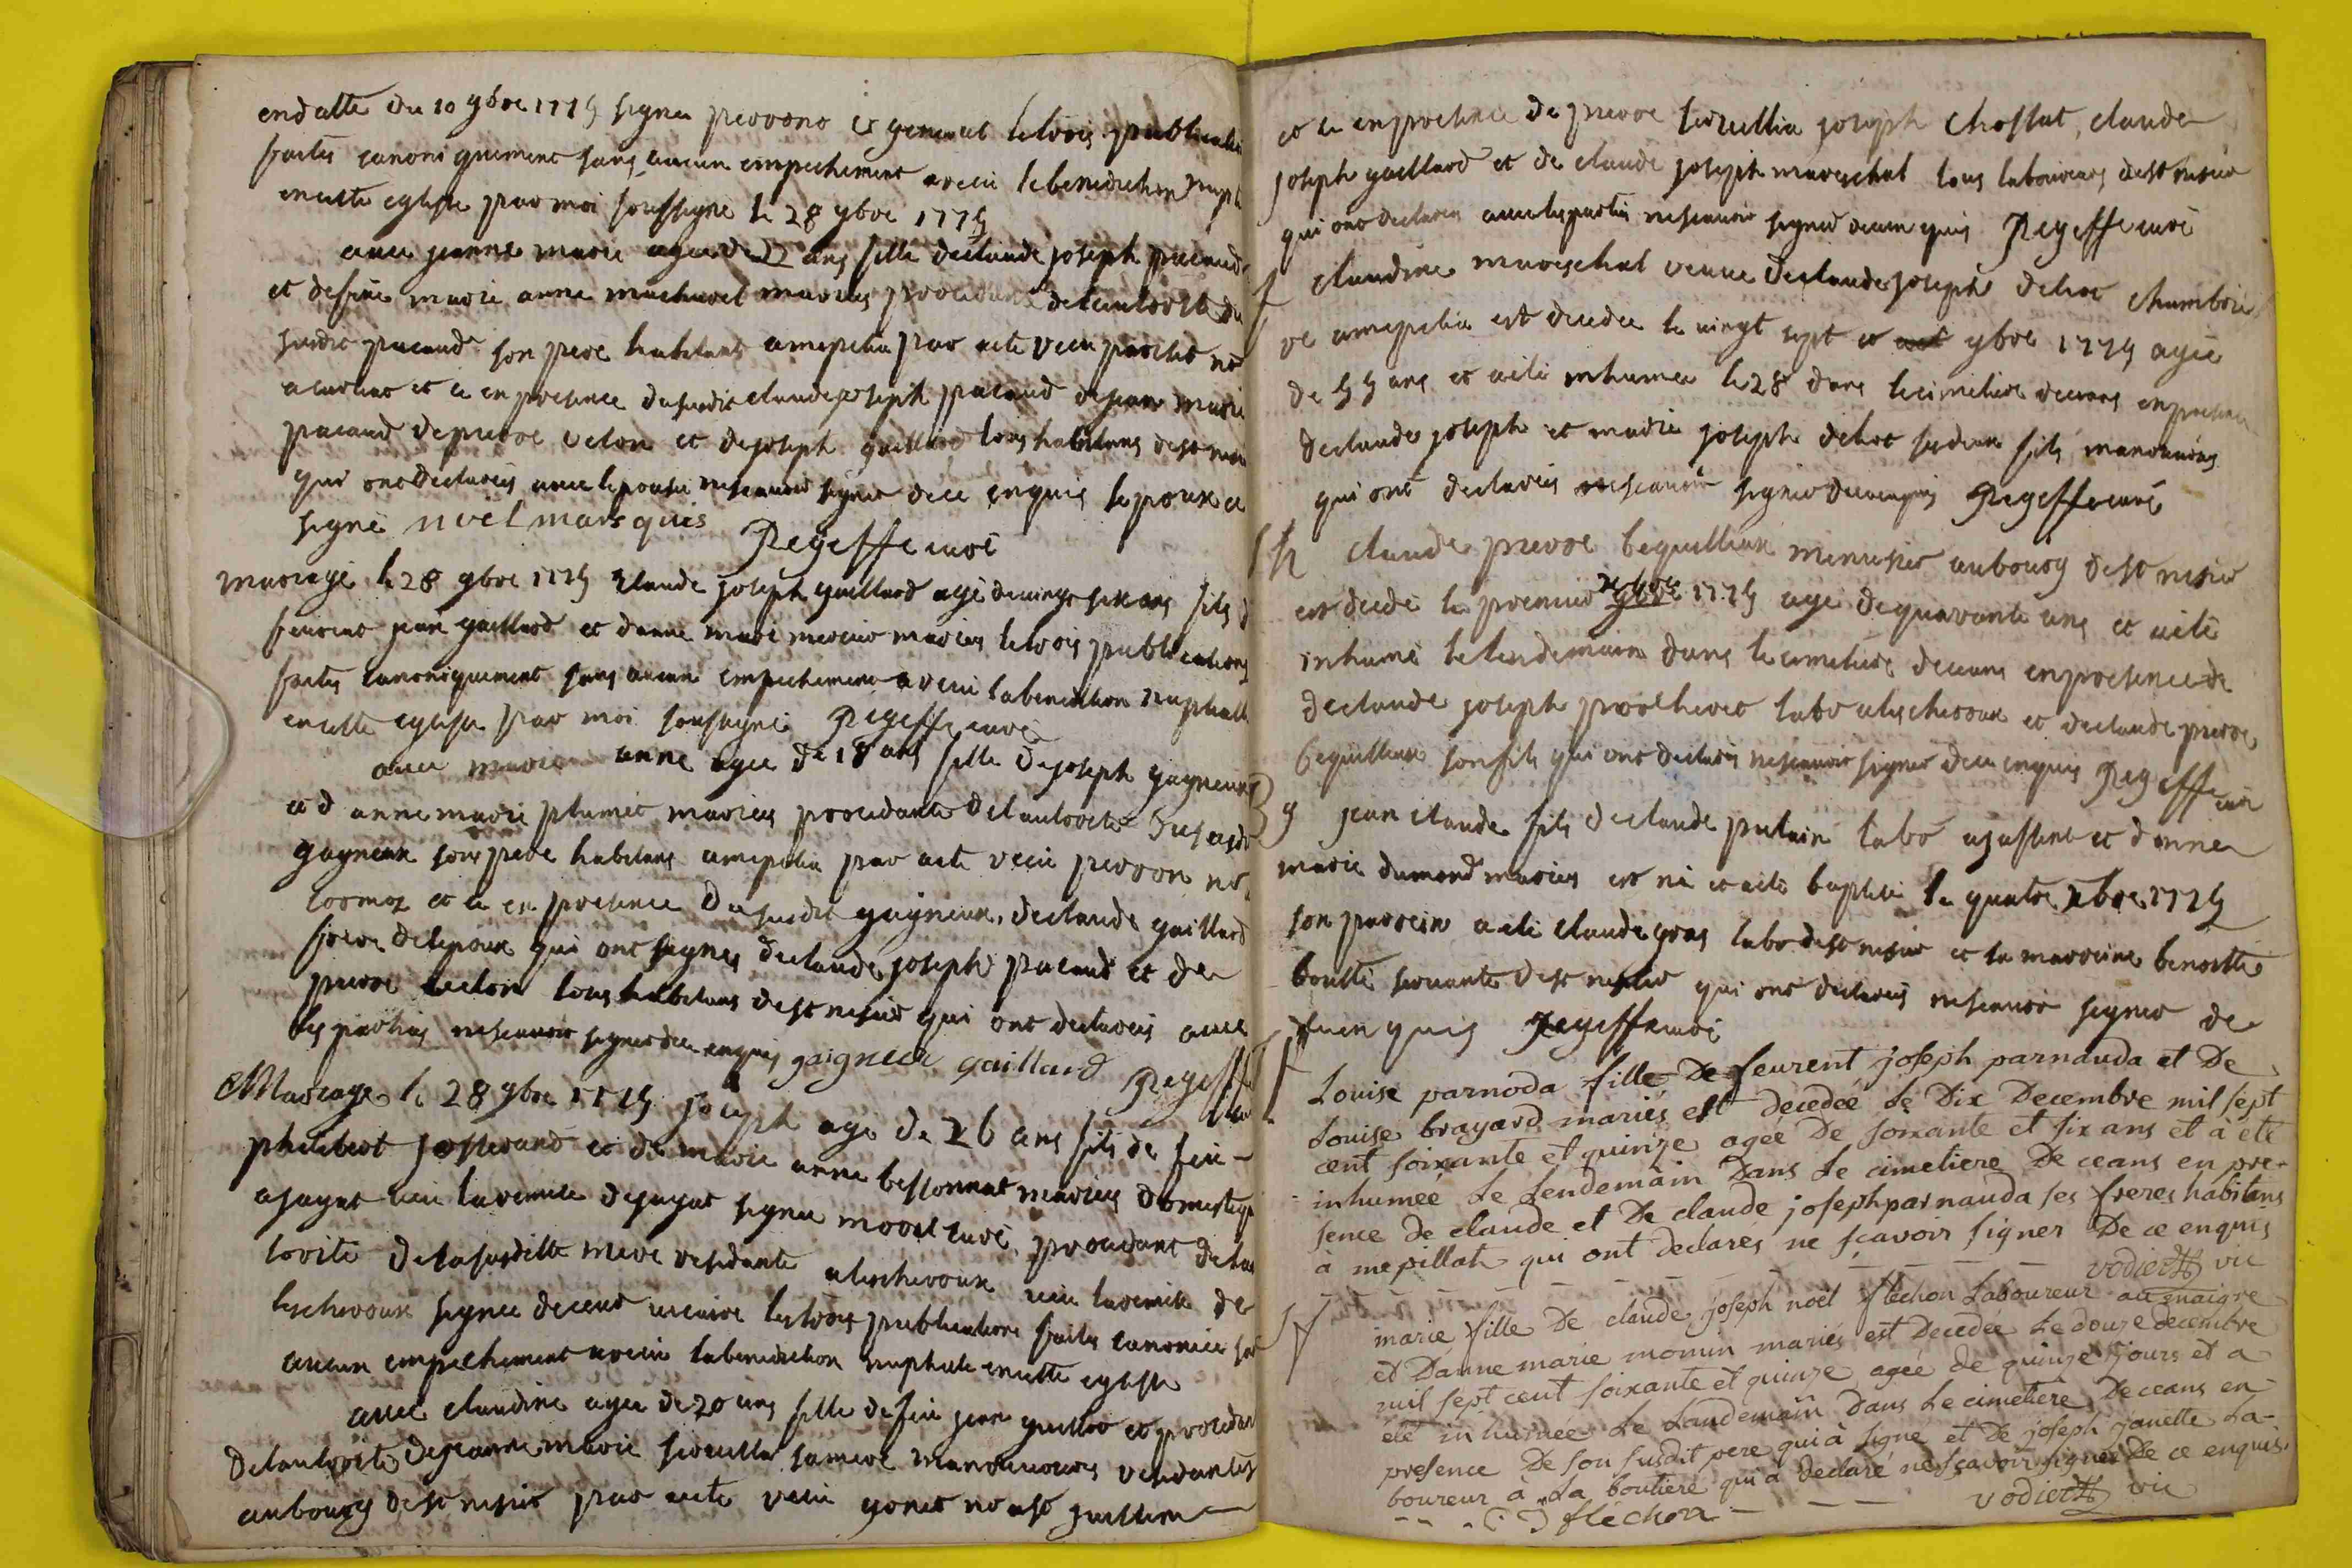 en datte du 10 9bre 1775 signee perrono les trois publicatio
faites canoniquement sans aucun empechement a recu la benediction nupt
en cette eglise par moi soussigne le 28 9bre 1775
avec jeanne marie agee de 22 ans fille de claude joseph pacaud
et de feüe marie anne machurel mariés procedante de lautorité du
susdit pacaud son pere habitants a mepilia par acte recu not
et ce en presence du susdit claude joseph pacaud de jean marie
pacaud de pierre velon et de joseph gaillard tous habitans de st
qui ont declarés avec lepouse ne scavoir signer de ce enquis lepoux a
signé nuel marsquis Regeffe curé
mariage le 28 9bre 1775 Claude joseph gaillard agé de vingt six ans fils d
feurent jean gaillard et danne marie mercier mariés les trois publications
faites canoniquement sans aucun empechement a recu la benediction nuptiall
en cette eglise par moi soussigné Regeffe curé
avec marie anne agee de 18 ans fille de joseph gagneux
et d anne marie plumet mariés procedante de lautorité du susdit
gagneux son pere habitans a mepilia par acte recu perron no
cormoz et ce en presence du susdit gagneux, de claude gaillard
frere de lepoux qui ont signés de claude joseph pacaud et de
pierre velon tous habitans de st nisier qui ont declarés avec
les parties ne scavoir signer de ce enquis gaigneux gaillard Regeffe
curé
Mariage le 28 9bre 1775 joseph agé de 26 ans fils de feu
philibert josserand et de marie anne bessonnat mariés domestiq
a jayat veu la remise de jayat signee morel curé, procedant de lau
torité de la susditte mere residante a lescheroux veu la remise de
lescheroux signee vicaire les trois publications faites canonici san
aucun empechement a recu la benediction nuptiale en cette eglise
avec claudine agee de 20 ans fille de feu jean guillot et procedan
de lautorité de jeanne marie sa mere manouvriers residantes
au bourg de st nisier par acte recu gonet no a st jullien
et ce en presence de pierre joseph Chossat, claude
joseph gaillard et de claude joseph mareschal tous laboureurs de st nisier
qui ont declarés avec les parties ne scavoir signer de ce enquis Regeffe curé
f claudine mareschal veuve de claude joseph debot chambrie
re a mepilia est decedee le vingt sept 9bre 1775 agée
de 55 ans et a eté inhumee le 28 dans le cimetiere de ceans en presence
de claude joseph et marie joseph debot ses deux fils manouvriers
qui ont declarés ne scavoir signer de ce enquis Regeffe curé
h claude pierre bequilleux menusier au bourg de st nisier
est decedé le premier xbre 1775 agé de quarante ans et a eté
inhumé le lendemain dans le cimetiere de ceans en presence de
de claude joseph labr a lescheroux et de claude pierre
bequilleux son fils qui ont declarés ne scavoir signer de ce enquis Regeffe curé
g jean claude fils de claude putain labo et danne
marie dumond mariés est né et a eté baptisé le quatre xbre 1775
son parrein a eté claude gras labr de st nisier et la marreine benoitte
boutte servante de st nisier qui ont declarés ne scavoir signer de
ce enquis Regeffe curé
f Louise parnoda fille De feurent joseph parnauda et De
Louise brayard mariés est decedée Le Dix Decembre mil sept
cent soixante et quinze agée De soixante et six ans et à eté
inhumeé Le Lendemain Dans Le cimetiere De ceans en pre-
sence de claude et De claude joseph parnauda ses freres habitans
à mepillat qui ont declarés ne sçavoir signer De ce enquis
vodiert vic
f marie fille De claude joseph noël fléchon Laboureur au maigre
et Danne marie momin mariés est Decedée Le douze decembre
mil sept cent soixante et quinze ageé de quinze jours et a
été inhumée Le Landemain Dans Le cimetiere De ceans en
presence De son susdit pere qui à signé et De joseph janette La-
boureur à La boutiere qui à declaré ne sçavoir signer De ce enquis.
fléchon vodiert vic